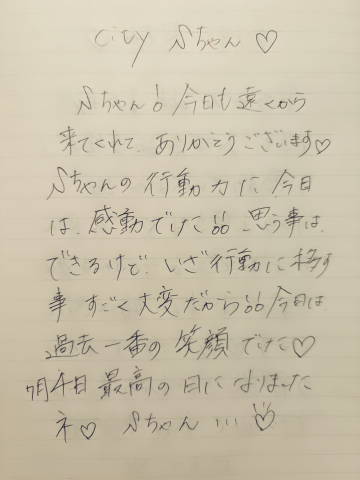 City Sちゃん♡
Sちゃん!! 今日も遠くから
来てくれて、ありがとうございます♡
Sちゃんの行動力に、今日
は、感動でした!! 思う事は、
できるけど、いざ行動に移す
事 すごく大変だから!! 今日は
過去一番の笑顔でした♡
7月4日 最高の日になりました
ネ♡ Sちゃん...♡